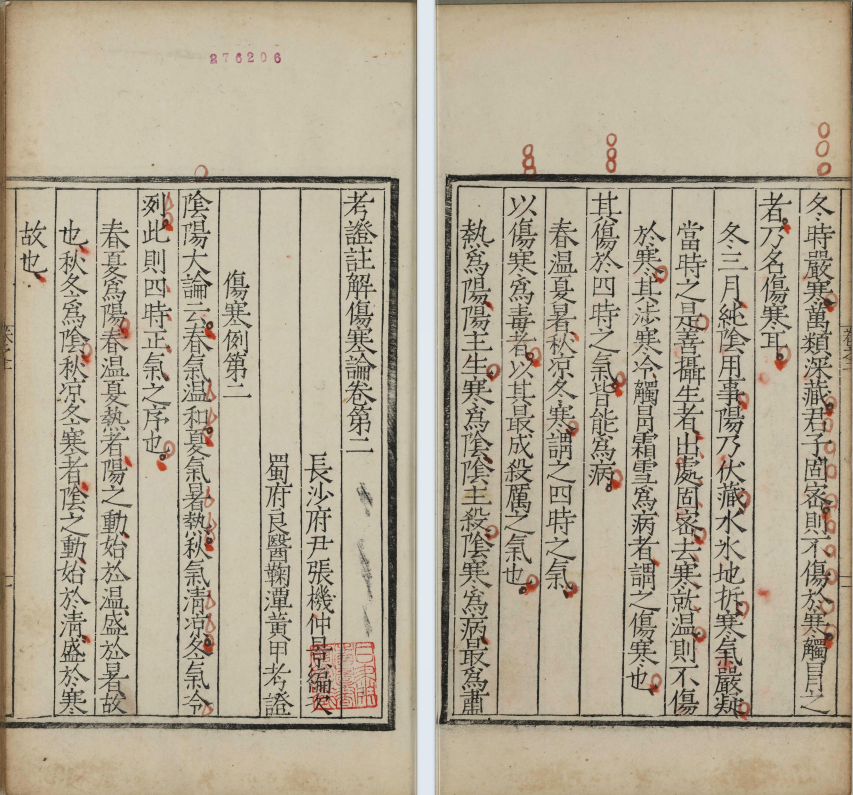 276206
考證註解傷寒論卷第二
長沙府尹張機仲景編次
蜀府良醫鞠潭黃甲考證
傷寒例第二
陰陽大論云春氣温和夏氣暑熱秋氣清凉冬氣冷
冽此則四時正氣之序也
春夏爲陽春温夏熱者陽之動始於温盛於暑故
也秋冬爲陰秋凉冬寒者陰之動始於清盛於寒
故也
冬時嚴寒萬類深藏君子固密則不傷於寒觸冒之
者乃名傷寒耳
冬三月純陰用事陽乃伏藏水氷地坼寒氣嚴凝
當時之是善攝生者出處固密去寒就温則不傷
於寒其涉寒冷觸冒霜雪爲病者謂之傷寒也
其傷於四時之氣皆能爲病
春温夏暑秋凉冬寒謂之四時之氣
以傷寒爲毒者以其最成殺厲之氣也
熱爲陽陽主生寒爲陰陰主殺陰寒爲病最爲肅